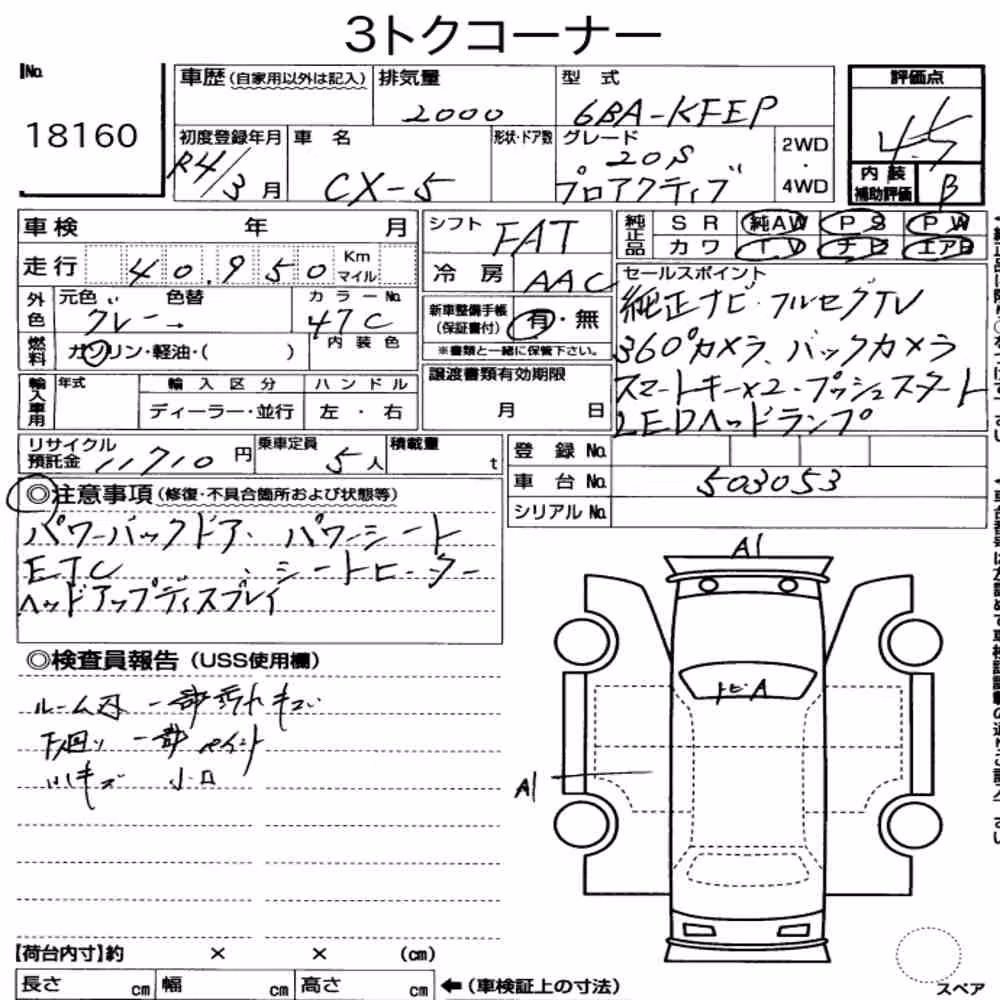 3トクコーナー
No.
18160
車歴 (自家用以外は記入)
排気量
2000
型式
6BA-KFEP
評価点
4.5
初度登録年月
R4/3月
車名
CX-5
形状・ドア数
グレード
20S
プロアクティブ
2WD
・
4WD
内装
補助評価
B
車検 年 月
走行 40,950 Km
マイル
シフト
FAT
冷房
AAC
純正品
SR 純AW PS PW
カワ TV ナビ エアB
外色
元色 色替
グレー →
カラーNo.
47C
燃料
ガソリン・軽油・( )
内装色
新車整備手帳
(保証書付)
有・無
※書類と一緒に保管下さい。
セールスポイント
純正ナビ・フルセグTV
360°カメラ、バックカメラ
スマートキー×2・プッシュスタート
LEDヘッドランプ
輸入車用
年式
輸入区分
ハンドル
ディーラー・並行
左・右
譲渡書類有効期限
月 日
リサイクル
預託金 11710 円
乗車定員
5人
積載量
t
登録No.
車台No.
503053
シリアルNo.
◎注意事項 (修復・不具合箇所および状態等)
パワーバックドア、パワーシート
ETC 、シートヒーター
ヘッドアップディスプレイ
◎検査員報告 (USS使用欄)
ルーム内 一部汚れキズ
下廻り 一部ペイント
キズ 小凹
A1
トビA
A1
【荷台内寸】約 × × (cm)
長さ cm 幅 cm 高さ cm
←(車検証上の寸法)
スペア